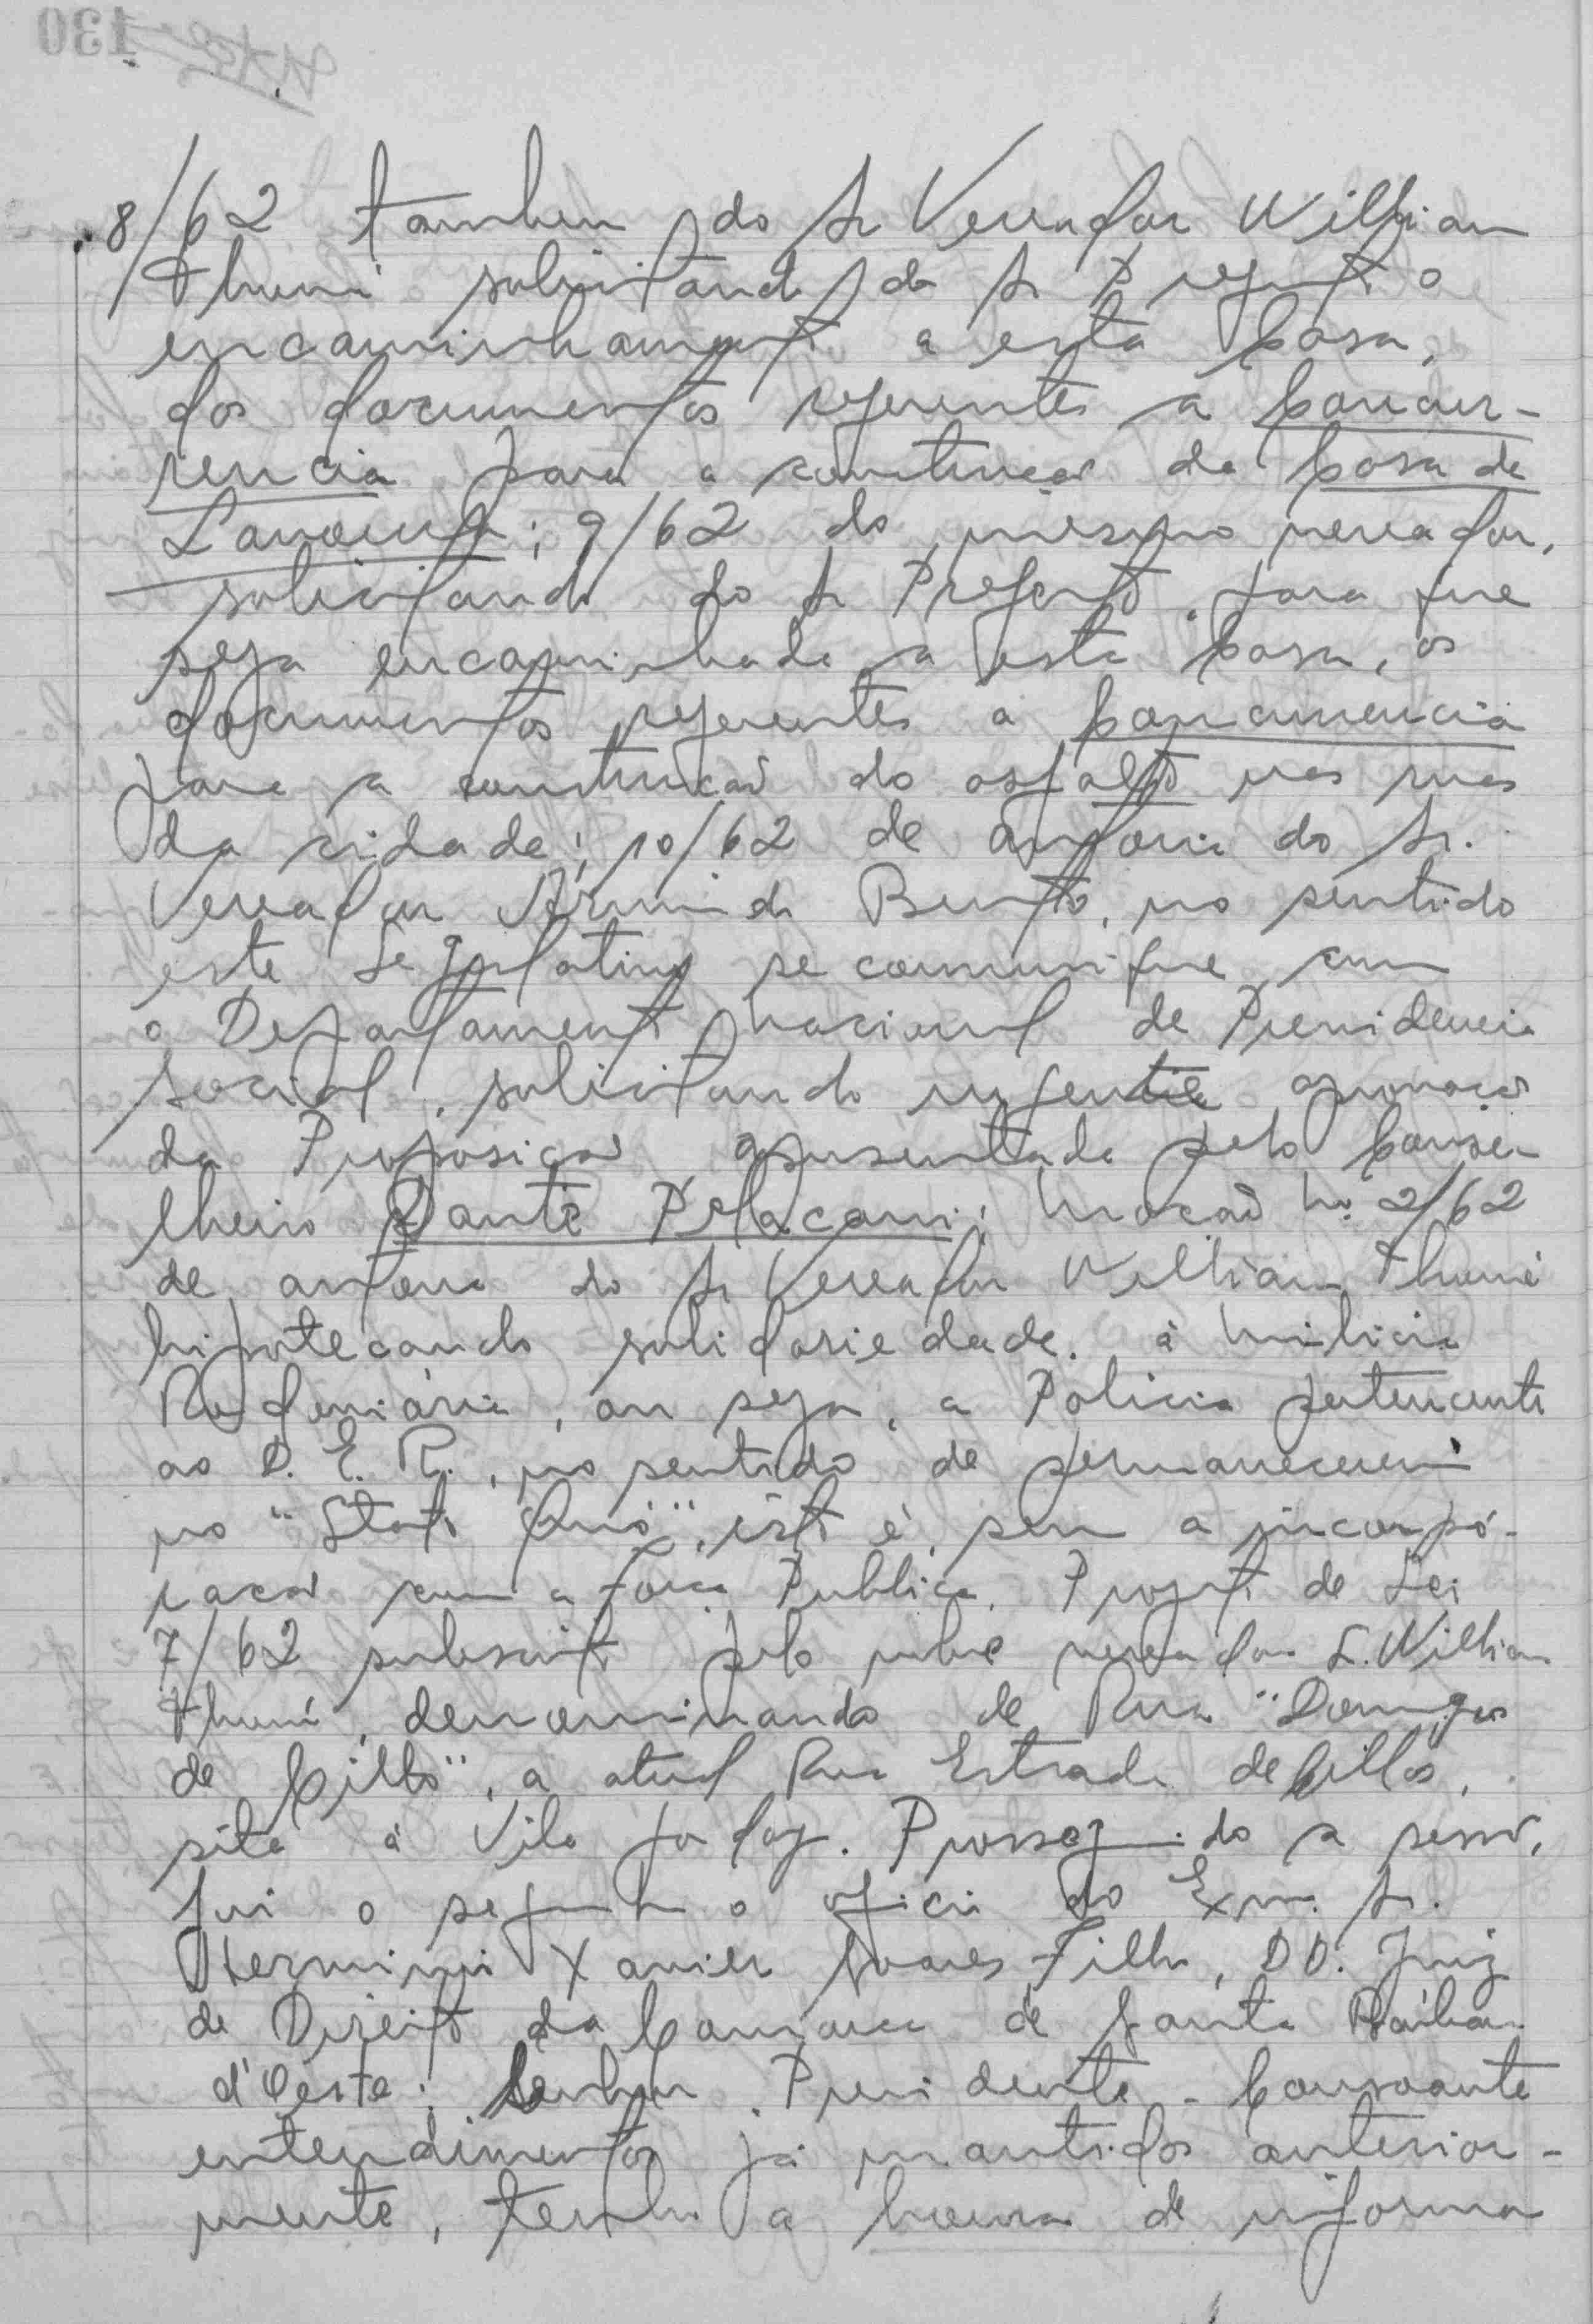 8/62 tambem do Sr Vereador Willian
Thomé solicitando do Sr Prefeito o
encaminhamento a esta Casa,
dos documentos referentes a Concor-
rencia para a construção da Casa de
Lavoura; 9/62 do mesmo vereador,
solicitando do Sr Prefeito, para que
seja encaminhado a esta Casa, os
documentos referentes a Concorrencia
para a construção do asfalto nas ruas
da cidade; 10/62 de autoria do Sr.
Vereador Bento, no sentido
este Legislativo se comunique com
o Departamento Nacional de Previdencia
Social, solicitando urgente aprovação
da Proposição apresentada pelo Conse-
lheiro Dante Pelacani; Moção No. 2/62
de autoria do Sr Vereador Willian Thomé
hipotecando solidariedade, à Milicia
Rodoviária, ou seja, a Policia pertencente
ao D. E. R., no sentido de permanecerem
no "Stato Quó", isto é, sem a incorpo-
ração com a Força Publica. Projeto de Lei
7/62 subscrito pelo nobre vereador S. Willian
Thomé, denominando de Rua "Domingos
de Cillo", a atual Rua Estrada de Cillos,
sita à Vila Godoy. Prosseguindo a sessão,
foi o seguinte o oficio do Exmo. Sr.
Herminio Xavier Soares Filho, DD. Juiz
de Direito da Comarca de Santa Bárbara
d'Oeste: Senhor Presidente - Consoante
entendimentos já mantidos anterior-
mente, tenho a honra de informa
130